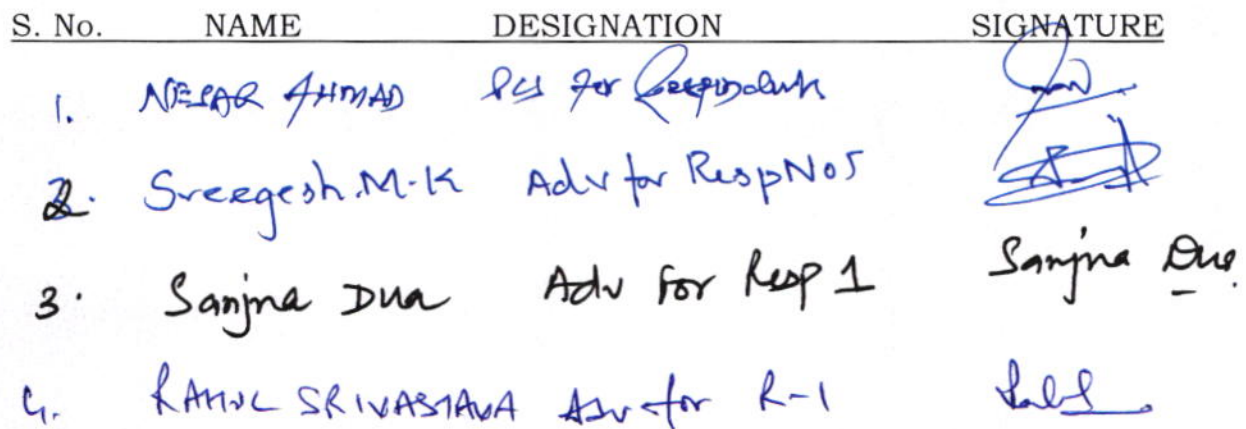 S. No. NAME DESIGNATION SIGNATURE
1. NESAR AHMAD PCS for Respondent
2. Sreegesh.M.K Adv for Resp No 5
3. Sanjna Dua Adv For Resp 1 Sanjna Dua.
4. RAHUL SRIVASTAVA Adv for R-1